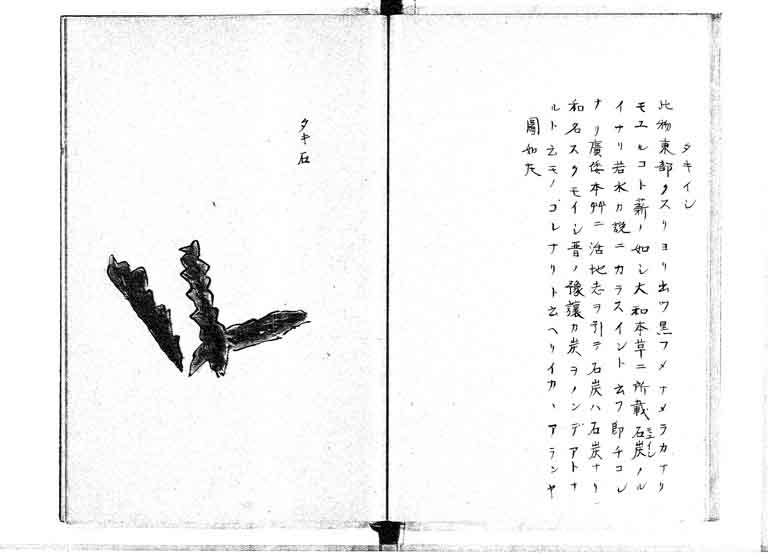 タキイシ
此物東部クスリヨリ出ツ黒フメナメラカナリ
モユルコト薪ノ如シ大和本草ニ所載石炭ノル
モエイシ
イナリ若水カ説ニカラスイシト云フ即チコレ
ナリ廣倭本艸ニ活地志ヲ引テ石炭ハ石炭ナリ
和名スクモイシ晋ノ豫讓カ炭ヲノンデアトナ
ルト云モノコレナリト云ヘリイカヽアランヤ
圖如左
タキ石